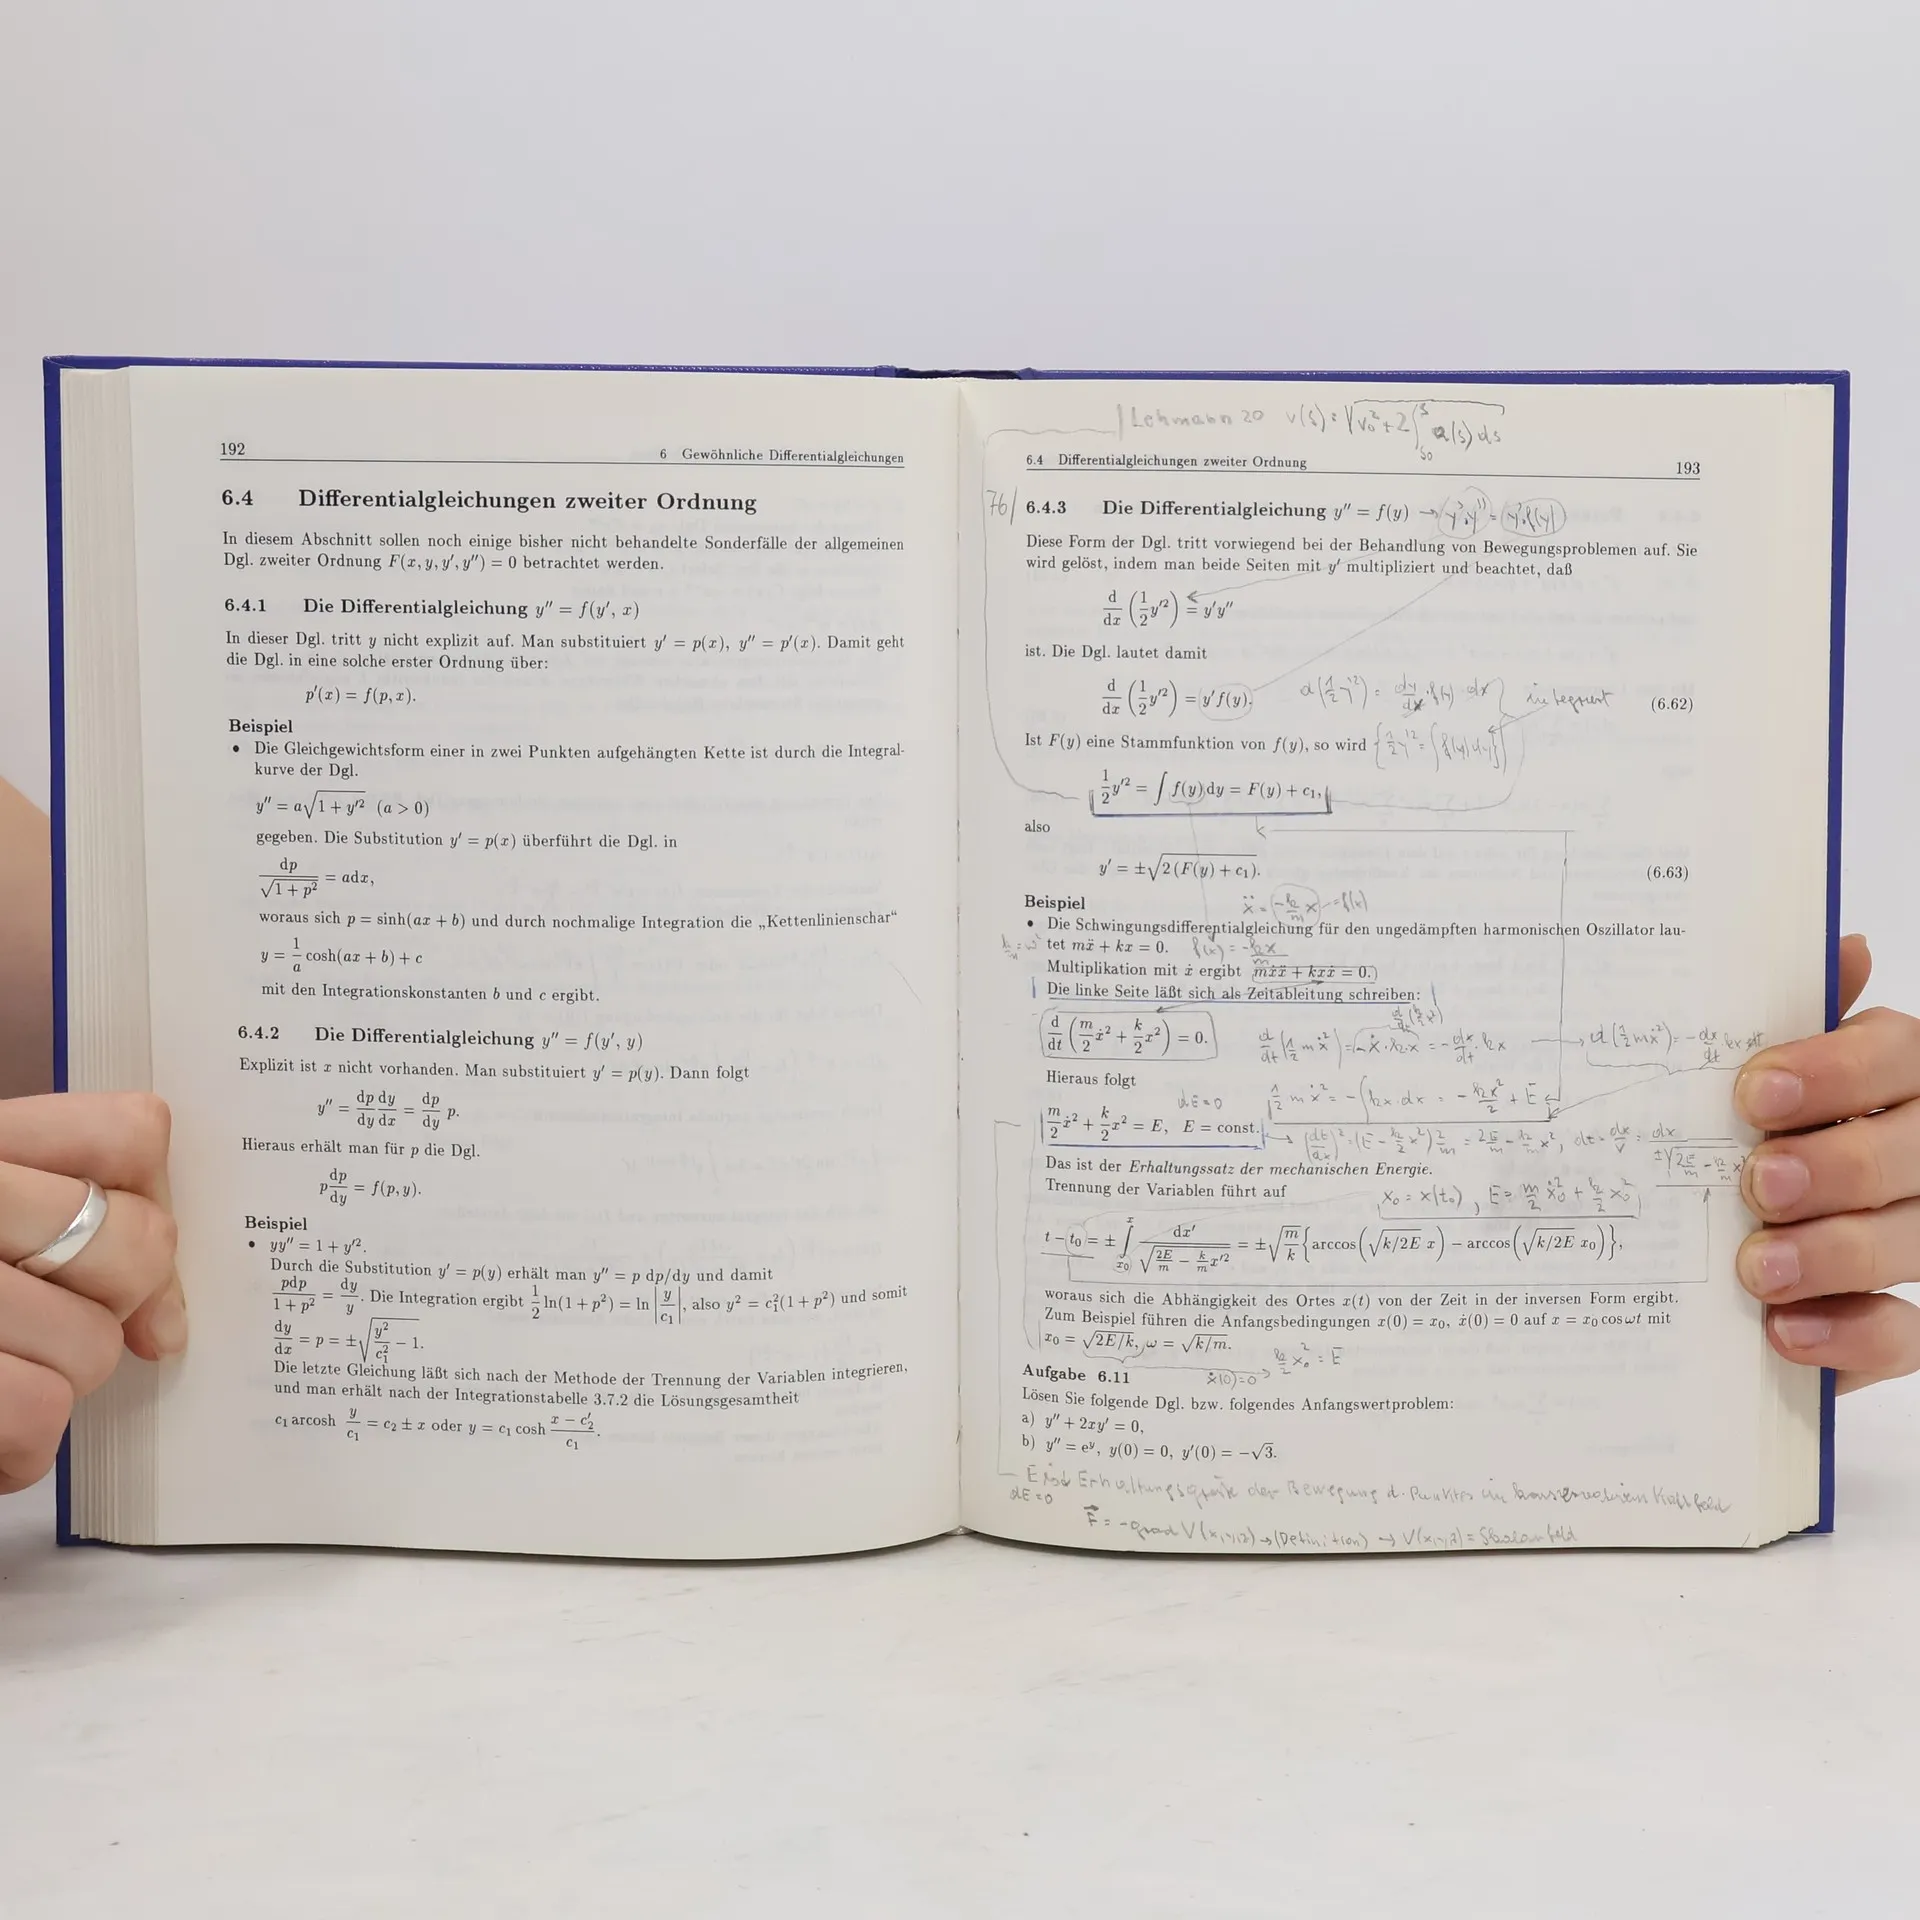 192
6 Gewöhnliche Differentialgleichungen
6.4 Differentialgleichungen zweiter Ordnung
In diesem Abschnitt sollen noch einige bisher nicht behandelte Sonderfälle der allgemeinen
Dgl. zweiter Ordnung F(x, y, y′, y″) = 0 betrachtet werden.
6.4.1 Die Differentialgleichung y″ = f(y′, x)
In dieser Dgl. tritt y nicht explizit auf. Man substituiert y′ = p(x), y″ = p′(x). Damit geht
die Dgl. in eine solche erster Ordnung über:
p′(x) = f(p, x).
Beispiel
• Die Gleichgewichtsform einer in zwei Punkten aufgehängten Kette ist durch die Integral-
kurve der Dgl.
y″ = a√(1 + y′²) (a > 0)
gegeben. Die Substitution y′ = p(x) überführt die Dgl. in
dp/√(1 + p²) = adx,
woraus sich p = sinh(ax + b) und durch nochmalige Integration die „Kettenlinienschar“
y = 1/a cosh(ax + b) + c
mit den Integrationskonstanten b und c ergibt.
6.4.2 Die Differentialgleichung y″ = f(y′, y)
Explizit ist x nicht vorhanden. Man substituiert y′ = p(y). Dann folgt
y″ = dp/dy dy/dx = dp/dy p.
Hieraus erhält man für p die Dgl.
p dp/dy = f(p, y).
Beispiel
• yy″ = 1 + y′².
Durch die Substitution y′ = p(y) erhält man y″ = p dp/dy und damit
pdp/(1 + p²) = dy/y. Die Integration ergibt 1/2 ln(1 + p²) = ln |y/c₁|, also y² = c₁²(1 + p²) und somit
dy/dx = p = ±√(y²/c₁² − 1).
Die letzte Gleichung läßt sich nach der Methode der Trennung der Variablen integrieren,
und man erhält nach der Integrationstabelle 3.7.2 die Lösungsgesamtheit
c₁ arcosh y/c₁ = c₂ ± x oder y = c₁ cosh (x − c₂′)/c₁.
Lehmann 20 v(s) = √(v₀² + 2∫ₛ₀ˢ a(s) ds
6.4 Differentialgleichungen zweiter Ordnung
193
76/
6.4.3 Die Differentialgleichung y″ = f(y) → y′·y″ = y′·f(y)
Diese Form der Dgl. tritt vorwiegend bei der Behandlung von Bewegungsproblemen auf. Sie
wird gelöst, indem man beide Seiten mit y′ multipliziert und beachtet, daß
d/dx (1/2 y′²) = y′y″
ist. Die Dgl. lautet damit
d/dx (1/2 y′²) = y′f(y). d(1/2 y′²) = dy/dx · f(y) · dx integriert (6.62)
Ist F(y) eine Stammfunktion von f(y), so wird {1/2 y′² = ∫f(y)dy}
1/2 y′² = ∫ f(y)dy = F(y) + c₁,
also
y′ = ±√(2 (F(y) + c₁)). (6.63)
Beispiel ẍ = (−k/m x) = f(x)
• Die Schwingungsdifferentialgleichung für den ungedämpften harmonischen Oszillator lau-
k/m = ω² tet mẍ + kx = 0. f(x) = −kx/m
Multiplikation mit ẋ ergibt mẋẍ + kxẋ = 0.
Die linke Seite läßt sich als Zeitableitung schreiben:
d/dt (m/2 ẋ² + k/2 x²) = 0. d/dt (1/2 mẋ²) = −ẋ·k·x = −dx/dt · kx → d(1/2 mẋ²) = −dx/dt kx dt
Hieraus folgt
dE = 0 1/2 mẋ² = −∫kx·dx = −kx²/2 + E
m/2 ẋ² + k/2 x² = E, E = const.
(E − k/2 x²) 2/m = 2E/m − k/m x², dt = dx/v = dx/±√(2E/m − k/m x²
Das ist der Erhaltungssatz der mechanischen Energie.
Trennung der Variablen führt auf x₀ = x(t₀), E = m/2 ẋ₀² + k/2 x₀²
t − t₀ = ± ∫ₓ₀ˣ dx′/√(2E/m − k/m x′²) = ±√(m/k) {arccos(√(k/2E) x) − arccos(√(k/2E) x₀)},
woraus sich die Abhängigkeit des Ortes x(t) von der Zeit in der inversen Form ergibt.
Zum Beispiel führen die Anfangsbedingungen x(0) = x₀, ẋ(0) = 0 auf x = x₀ cos ωt mit
x₀ = √(2E/k), ω = √(k/m).
ẋ(0) = 0 → k/2 x₀² = E
Aufgabe 6.11
Lösen Sie folgende Dgl. bzw. folgendes Anfangswertproblem:
a) y″ + 2xy′ = 0,
b) y″ = eʸ, y(0) = 0, y′(0) = −√3.
E ist Erhaltungsgröße der Bewegung d. Punktes im konservativem Kraftfeld
dE = 0
F⃗ = −grad V(x,y,z) → (Definition) → V(x,y,z) = Skalarfeld